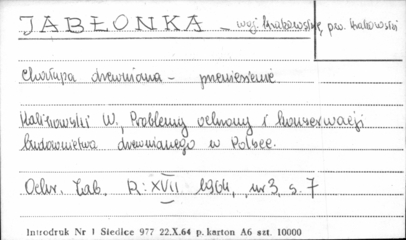 JABŁONKA – woj. krakowskie, pow. krakowski
chałupa drewniana – przeniesienie.
Kalinowski W., Problemy ochrony i konserwacji
budownictwa drewnianego w Polsce.
Ochr. Zab. R: XVII 1964, nr 3, s. 7
Introdruk Nr 1 Siedlce 977 22.X.64 p. karton A6 szt. 10000